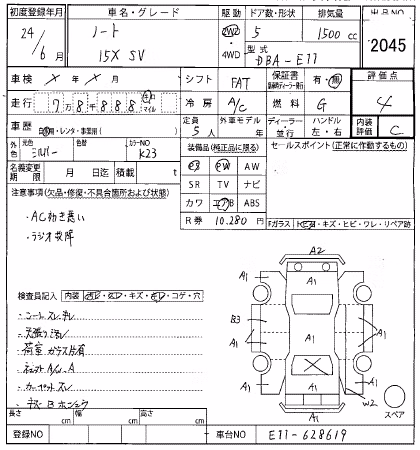 初度登録年月 車名・グレード 駆動 ドア数・形状 排気量 出品NO
24 / 6 月 ノート 2WD 5 1500 cc 2045
15X SV ・4WD 型式 DBA-E11
車検 X 年 X 月 シフト FAT 保証書 有・無 評価点
走行 7万8888 キロ マイル 冷房 A/C 燃料 G 4
車歴 自家用・レンタ・事業用( ) 定員 5人 外車モデル 年 ディーラー・並行 ハンドル 左・右 内装評価 C
外色 元色 シルバー 色替 カラーNO K23 装備品(純正品に限る) セールスポイント(正常に作動するもの)
PS PW AW
名義変更期限 月 日迄 積載 t SR TV ナビ
注意事項(欠品・修復・不具合箇所および状態) カワ エアB ABS
R券 10.280円 Fガラス キズ・ヒビ・ワレ・リペア跡
・AC効き悪い
・ラジオ故障
A2
A1
A1 A1
検査員記入 内装 キズ・コゲ・穴
B3 A1 A1
・シートスレ、汚レ
・天張り汚レ
A1
・荷室ガラス片有
A1 A1
・カーペットスレ
W2
A1 スペア
長さ cm 幅 cm 高さ cm
登録NO 車台NO E11-628619